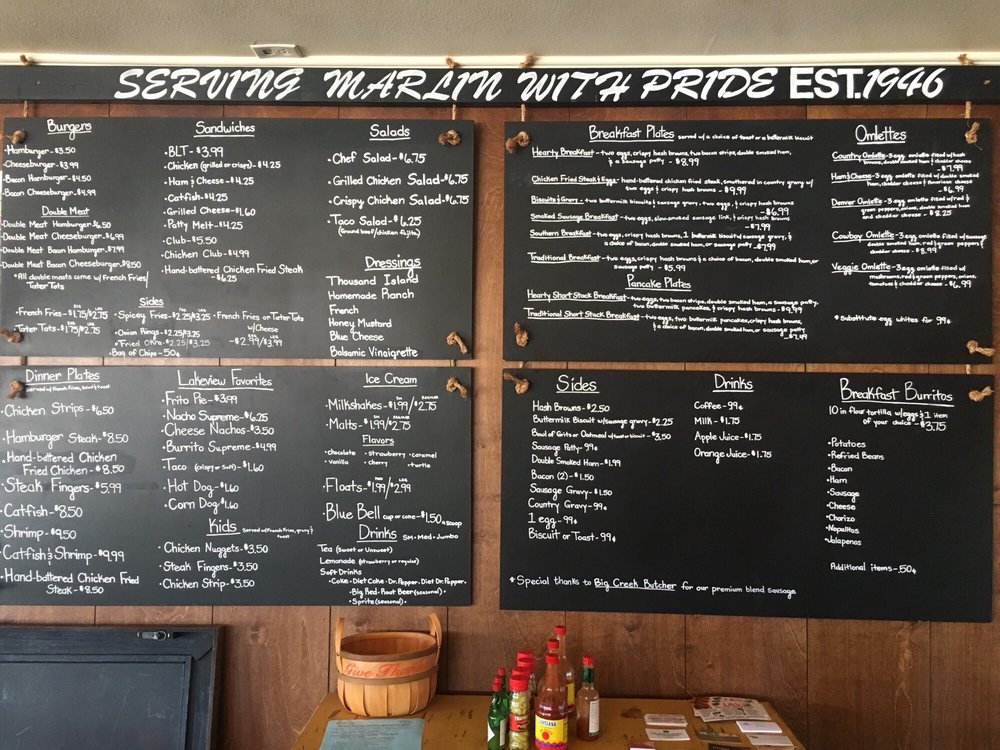 SERVING MARLIN WITH PRIDE EST.1946
Burgers
Hamburger-$3.50
Cheeseburger-$3.99
Bacon Hamburger-$4.50
Bacon Cheeseburger-$4.99
Double Meat
Double Meat Hamburger-$6.50
Double Meat Cheeseburger-$6.99
Double Meat Bacon Hamburger-$7.99
Double Meat Bacon Cheeseburger-$8.50
*All double meats come w/ French Fries/
Tater Tots
Sandwiches
BLT-$3.99
Chicken (grilled or crispy)-$4.25
Ham & Cheese-$4.25
Catfish-$4.25
Grilled Cheese-$1.60
Patty Melt-$4.25
Club-$5.50
Chicken Club-$4.99
Hand-battered Chicken Fried Steak
-$6.25
Sides
French Fries-$1.75/$2.75
Tater Tots-$1.75/$2.75
Spicey Fries-$2.25/$3.25
Onion Rings-$2.25/$3.25
Fried Okra-$2.25/$3.25
Bag of Chips-50¢
French Fries or Tater Tots
w/Cheese
-$2.99/$3.99
Salads
Chef Salad-$6.75
Grilled Chicken Salad-$6.75
Crispy Chicken Salad-$6.75
Taco Salad-$6.25
(Ground beef/chicken fajita)
Dressings
Thousand Island
Homemade Ranch
French
Honey Mustard
Blue Cheese
Balsamic Vinaigrette
Breakfast Plates served w/a choice of toast or a buttermilk biscuit
Hearty Breakfast-two eggs, crispy hash browns, two bacon strips, double smoked ham,
& a sausage patty -$8.99
Chicken Fried Steak & Eggs-hand-battered chicken fried steak, smothered in country gravy w/
two eggs & crispy hash browns -$9.99
Biscuits & Gravy-two buttermilk biscuits w/ sausage gravy, two eggs, & crispy hash browns
-$6.99
Smoked Sausage Breakfast-two eggs, slow smoked sausage link, & crispy hash browns
-$7.99
Southern Breakfast-two eggs, crispy hash browns, 1 buttermilk biscuit w/ sausage gravy, &
a choice of bacon, double smoked ham, or sausage patty -$7.99
Traditional Breakfast-two eggs, crispy hash browns & a choice of bacon, double smoked ham, or
sausage patty -$5.99
Pancake Plates
Hearty Short Stack Breakfast-two eggs, two bacon strips, double smoked ham, a sausage patty,
two buttermilk pancakes, & crispy hash browns -$9.99
Traditional Short Stack Breakfast-two eggs, two buttermilk pancakes, crispy hash browns
& a choice of bacon, double smoked ham, or sausage patty
-$7.49
Omlettes
Country Omlette-3 egg omlette filled w/ hash
browns, double smoked ham, & cheddar cheese
-$7.99
Ham & Cheese-3 egg omlette filled w/ double smoked
ham, cheddar & american cheese
-$6.99
Denver Omlette-3 egg omlette filled w/ red &
green peppers, onions, double smoked ham
and cheddar cheese -$8.25
Cowboy Omlette-3 egg omlette filled w/ sausage
double smoked ham, red & green peppers &
cheddar cheese -$8.99
Veggie Omlette-3 egg omlette filled w/
mushrooms, red & green peppers, onions,
tomatoes & cheddar cheese -$6.99
*Substitute egg whites for 99¢
Dinner Plates
served w/ French Fries, Salad & toast
Chicken Strips-$6.50
Hamburger Steak-$8.50
Hand-battered Chicken
Fried Chicken-$8.50
Steak Fingers-$5.99
Catfish-$8.50
Shrimp-$9.50
Catfish & Shrimp-$9.99
Hand-battered Chicken Fried
Steak-$8.50
Lakeview Favorites
Frito Pie-$3.99
Nacho Supreme-$6.25
Cheese Nachos-$3.50
Burrito Supreme-$4.99
Taco (crispy or Soft)-$1.60
Hot Dog-$1.60
Corn Dog-$1.60
Kids Served w/French Fries, gravy &
toast
Chicken Nuggets-$3.50
Steak Fingers-$3.50
Chicken Strip-$3.50
Ice Cream
Milkshakes-$1.99/$2.75
Malts-$1.99/$2.75
Flavors
chocolate • strawberry • caramel
vanilla • cherry • turtle
Floats-$1.99/$2.99
Blue Bell cup or cone-$1.50 a scoop
Drinks SM • Med • Jumbo
Tea (Sweet or Unsweet)
Lemonade (strawberry or regular)
Soft Drinks
• Coke • Diet Coke • Dr. Pepper • Diet Dr. Pepper •
• Big Red • Root Beer (seasonal) •
• Sprite (seasonal) •
Sides
Hash Browns-$2.50
Buttermilk Biscuit w/sausage gravy-$2.25
Bowl of Grits or Oatmeal w/ toast or biscuit-$3.50
Sausage Patty-99¢
Double Smoked Ham-$1.99
Bacon (2)-$1.50
Sausage Gravy-$1.50
Country Gravy-99¢
1 egg-99¢
Biscuit or Toast-99¢
Drinks
Coffee-99¢
Milk-$1.75
Apple Juice-$1.75
Orange Juice-$1.75
Breakfast Burritos
10 in flour tortilla w/ eggs & 1 item
of your choice-$3.75
•Potatoes
•Refried Beans
•Bacon
•Ham
•Sausage
•Cheese
•Chorizo
•Nopalitos
•Jalapenos
Additional items-.50¢
*Special thanks to Big Creek Butcher for our premium blend sausage
Give Thanks